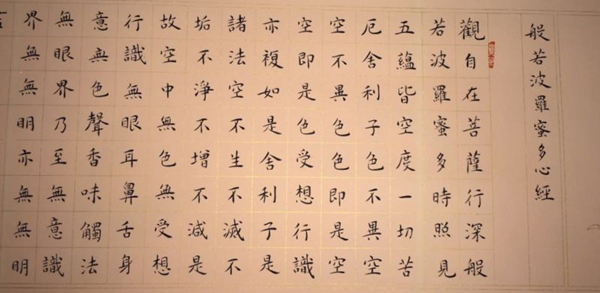 般若波羅蜜多心經
觀自在菩薩行深般
若波羅蜜多時照見
五蘊皆空度一切苦
厄舍利子色不異空
空不異色色即是空
空即是色受想行識
亦複如是舍利子是
諸法空不生不滅不
垢不淨不增不減是
故空中無色無受想
行識無眼耳鼻舌身
意無色聲香味觸法
無眼界乃至無意識
界無無明亦無無明